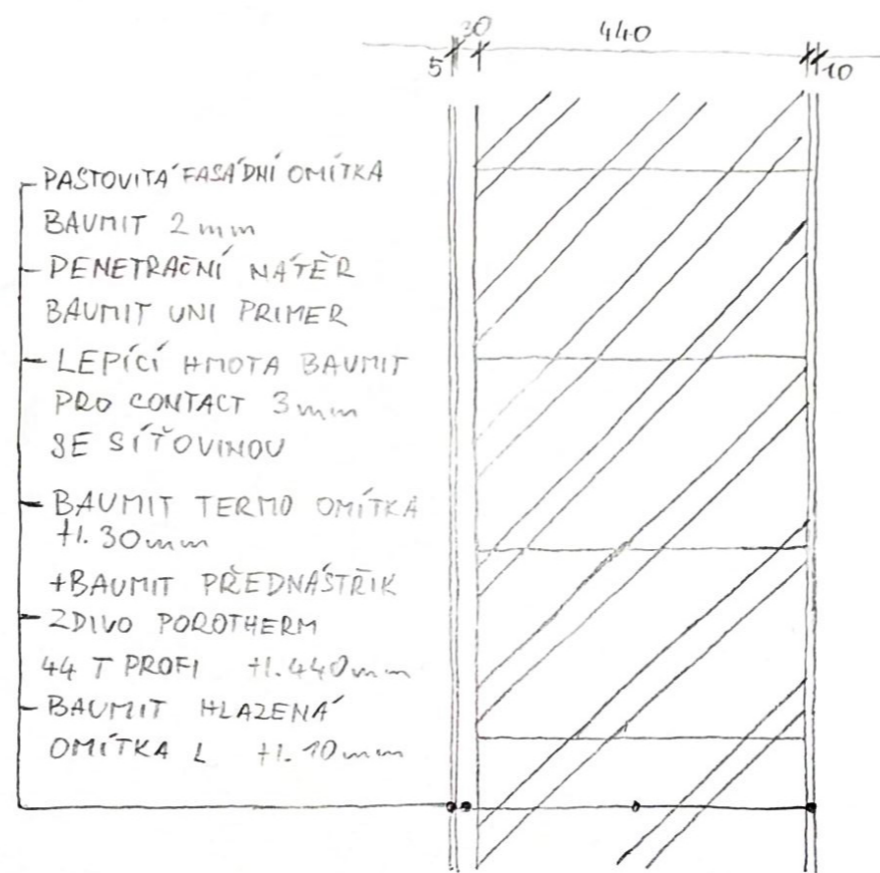 30
440
5
10
PASTOVITÁ FASÁDNÍ OMÍTKA
BAUMIT 2mm
PENETRAČNÍ NÁTĚR
BAUMIT UNI PRIMER
LEPÍCÍ HMOTA BAUMIT
PRO CONTACT 3mm
SE SÍŤOVINOU
BAUMIT TERMO OMÍTKA
tl. 30mm
+BAUMIT PŘEDNÁSTŘIK
ZDIVO POROTHERM
44 T PROFI tl. 440mm
BAUMIT HLAZENÁ
OMÍTKA L tl. 10mm